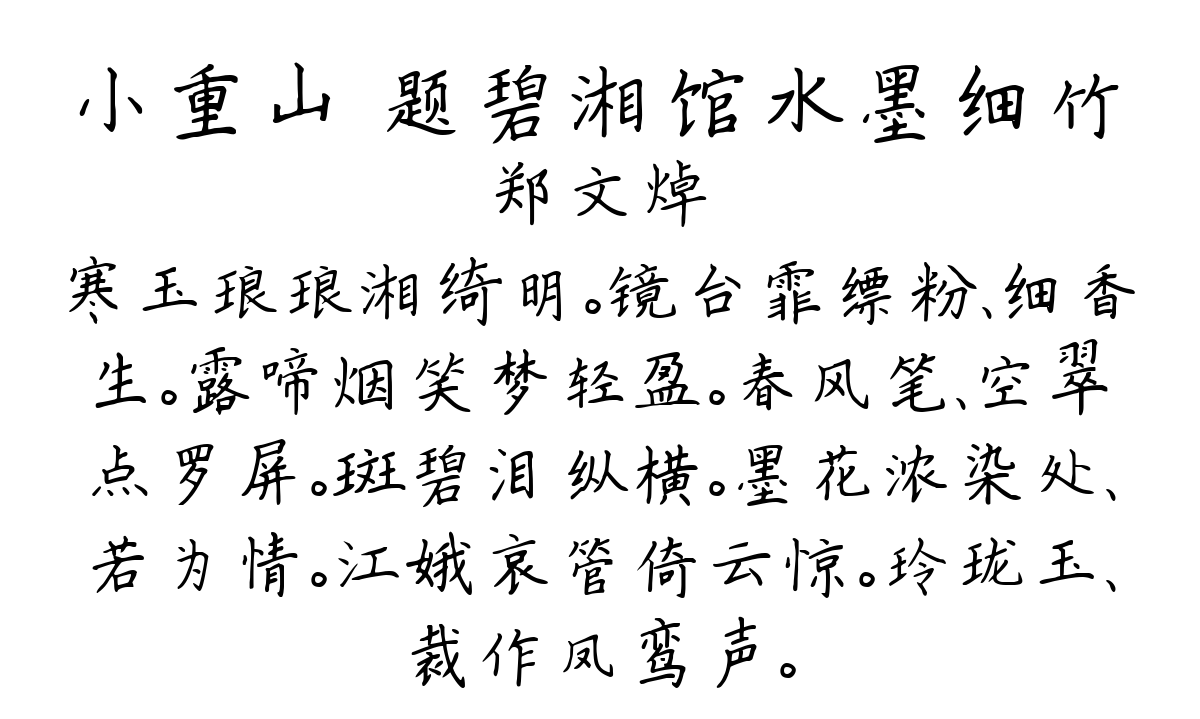 小重山 题碧湘馆水墨细竹
郑文焯
寒玉琅琅湘绮明。镜台霏缥粉、细香
生。露啼烟笑梦轻盈。春风笔、空翠
点罗屏。斑碧泪纵横。墨花浓染处、
若为情。江娥哀管倚云惊。玲珑玉、
裁作凤鸾声。